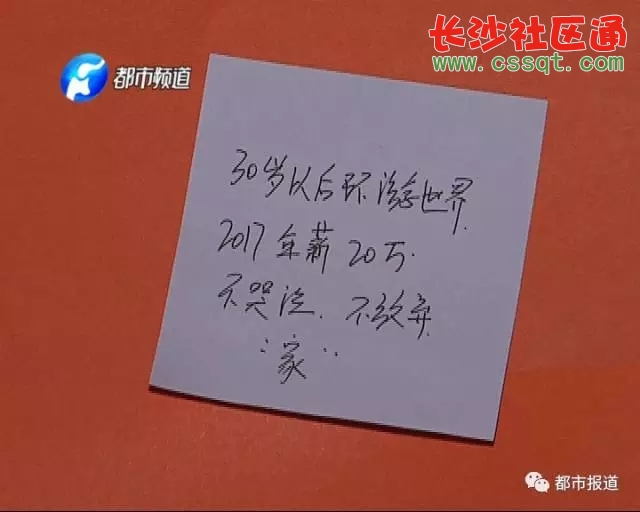 都市频道
长沙社区通
www.cssqt.com
30岁以后环游世界.
2017年薪20万.
不哭泣.不放弃
“家”
都市报道